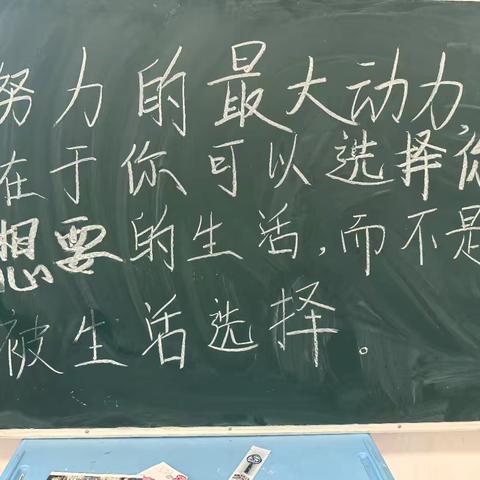 努力的最大动力
在于你可以选择你
想要的生活,而不是
被生活选择。